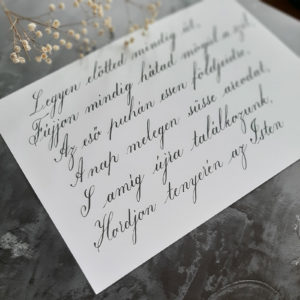 Legyen előtted mindig út,
Fújjon mindig hátad mögül a szél
Az eső puhán essen földjeidre,
A nap melegen süsse arcodat,
S amíg újra találkozunk,
Hordjon tenyerén az Isten